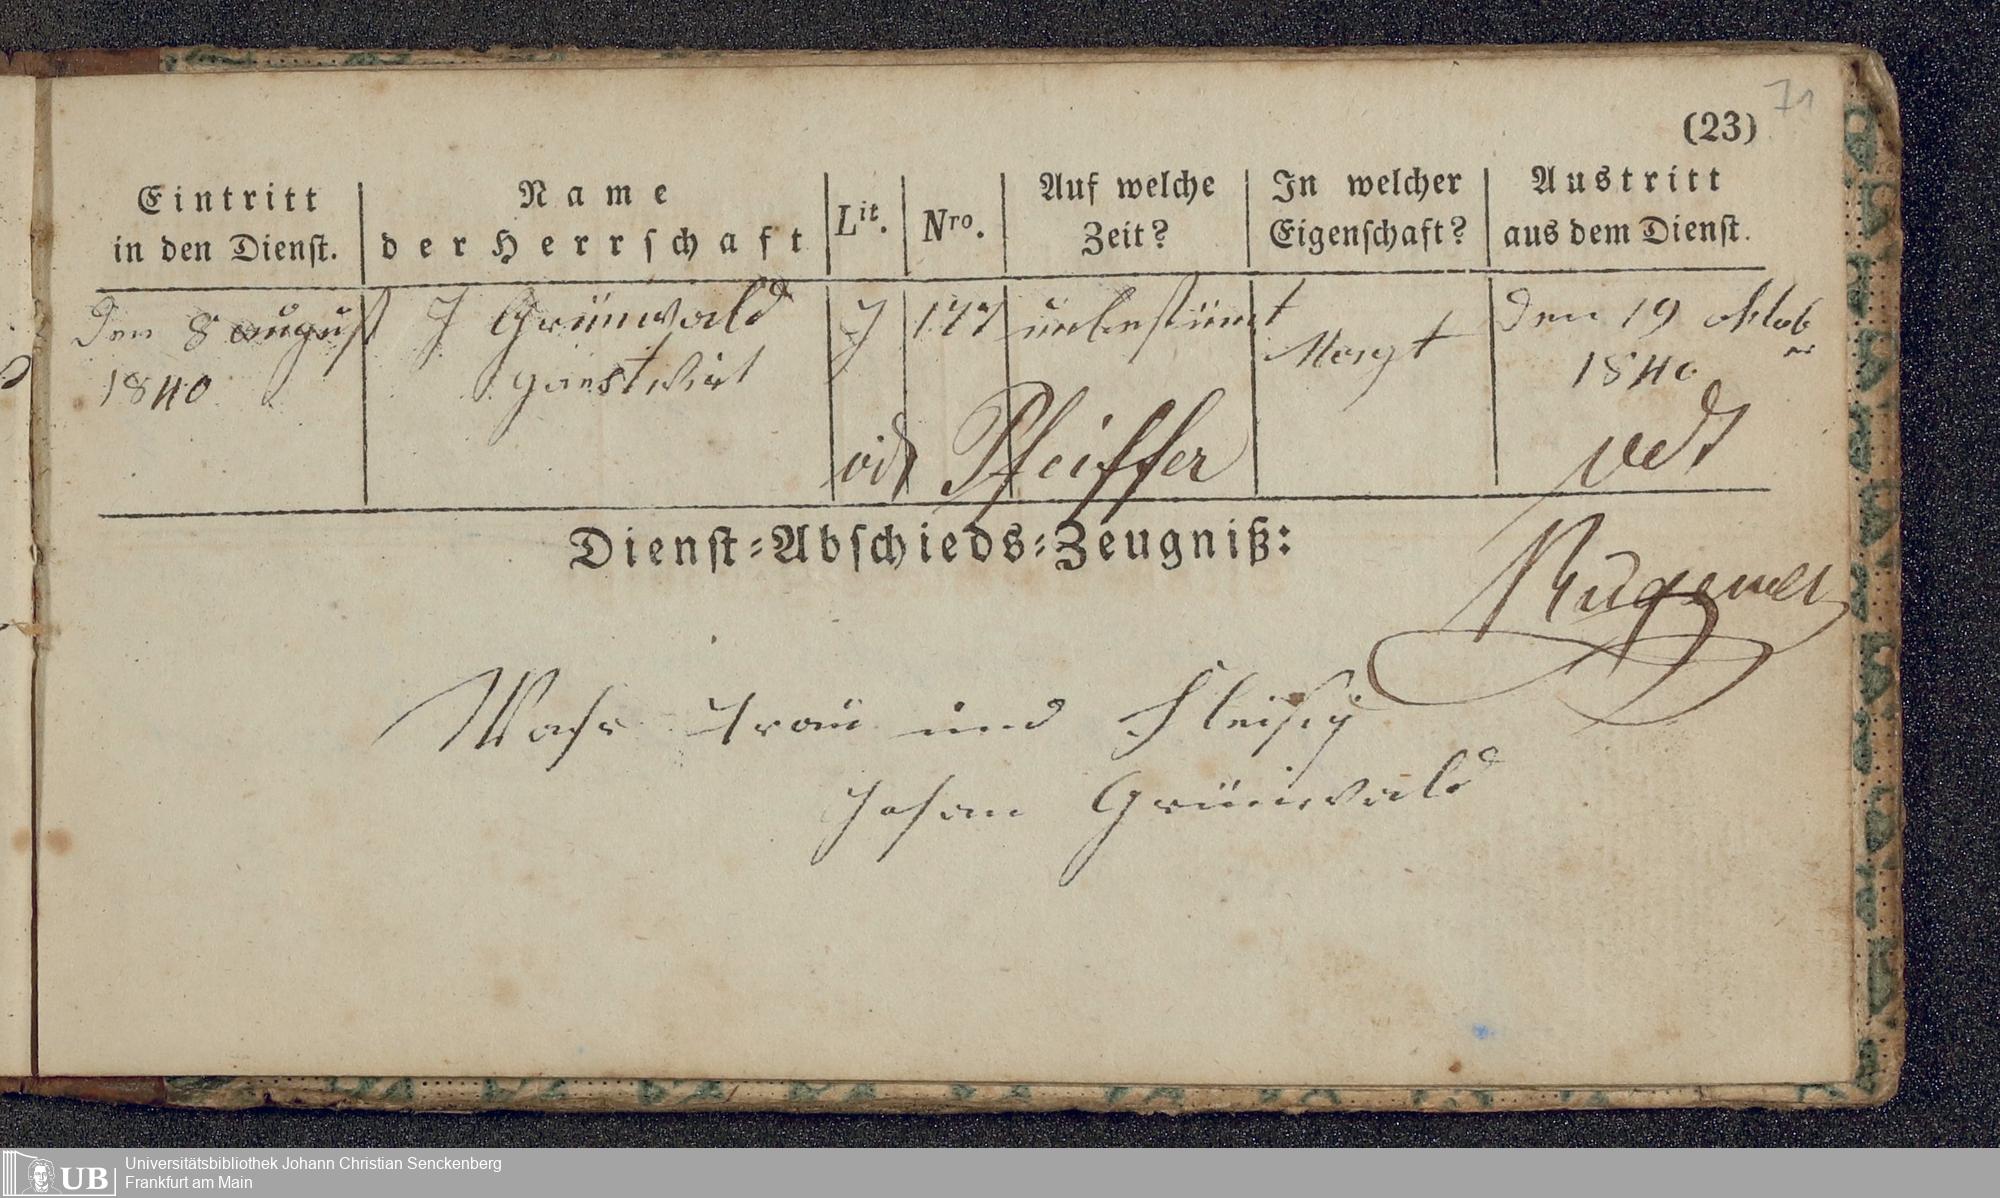 71
(23)
Eintritt in den Dienst.
Name der Herrschaft
Lit.
Nro.
Auf welche Zeit?
In welcher Eigenschaft?
Austritt aus dem Dienst.
Den 8 august 1840
J Grünwald gastwirt
J
177
unbestimt
Magt
Den 19 oktober 1840
vid Pfeiffer
vdt
Dienst-Abschieds-Zeugniß:
War trau und fleisig
Johan Grünwald
UB
Universitätsbibliothek Johann Christian Senckenberg
Frankfurt am Main